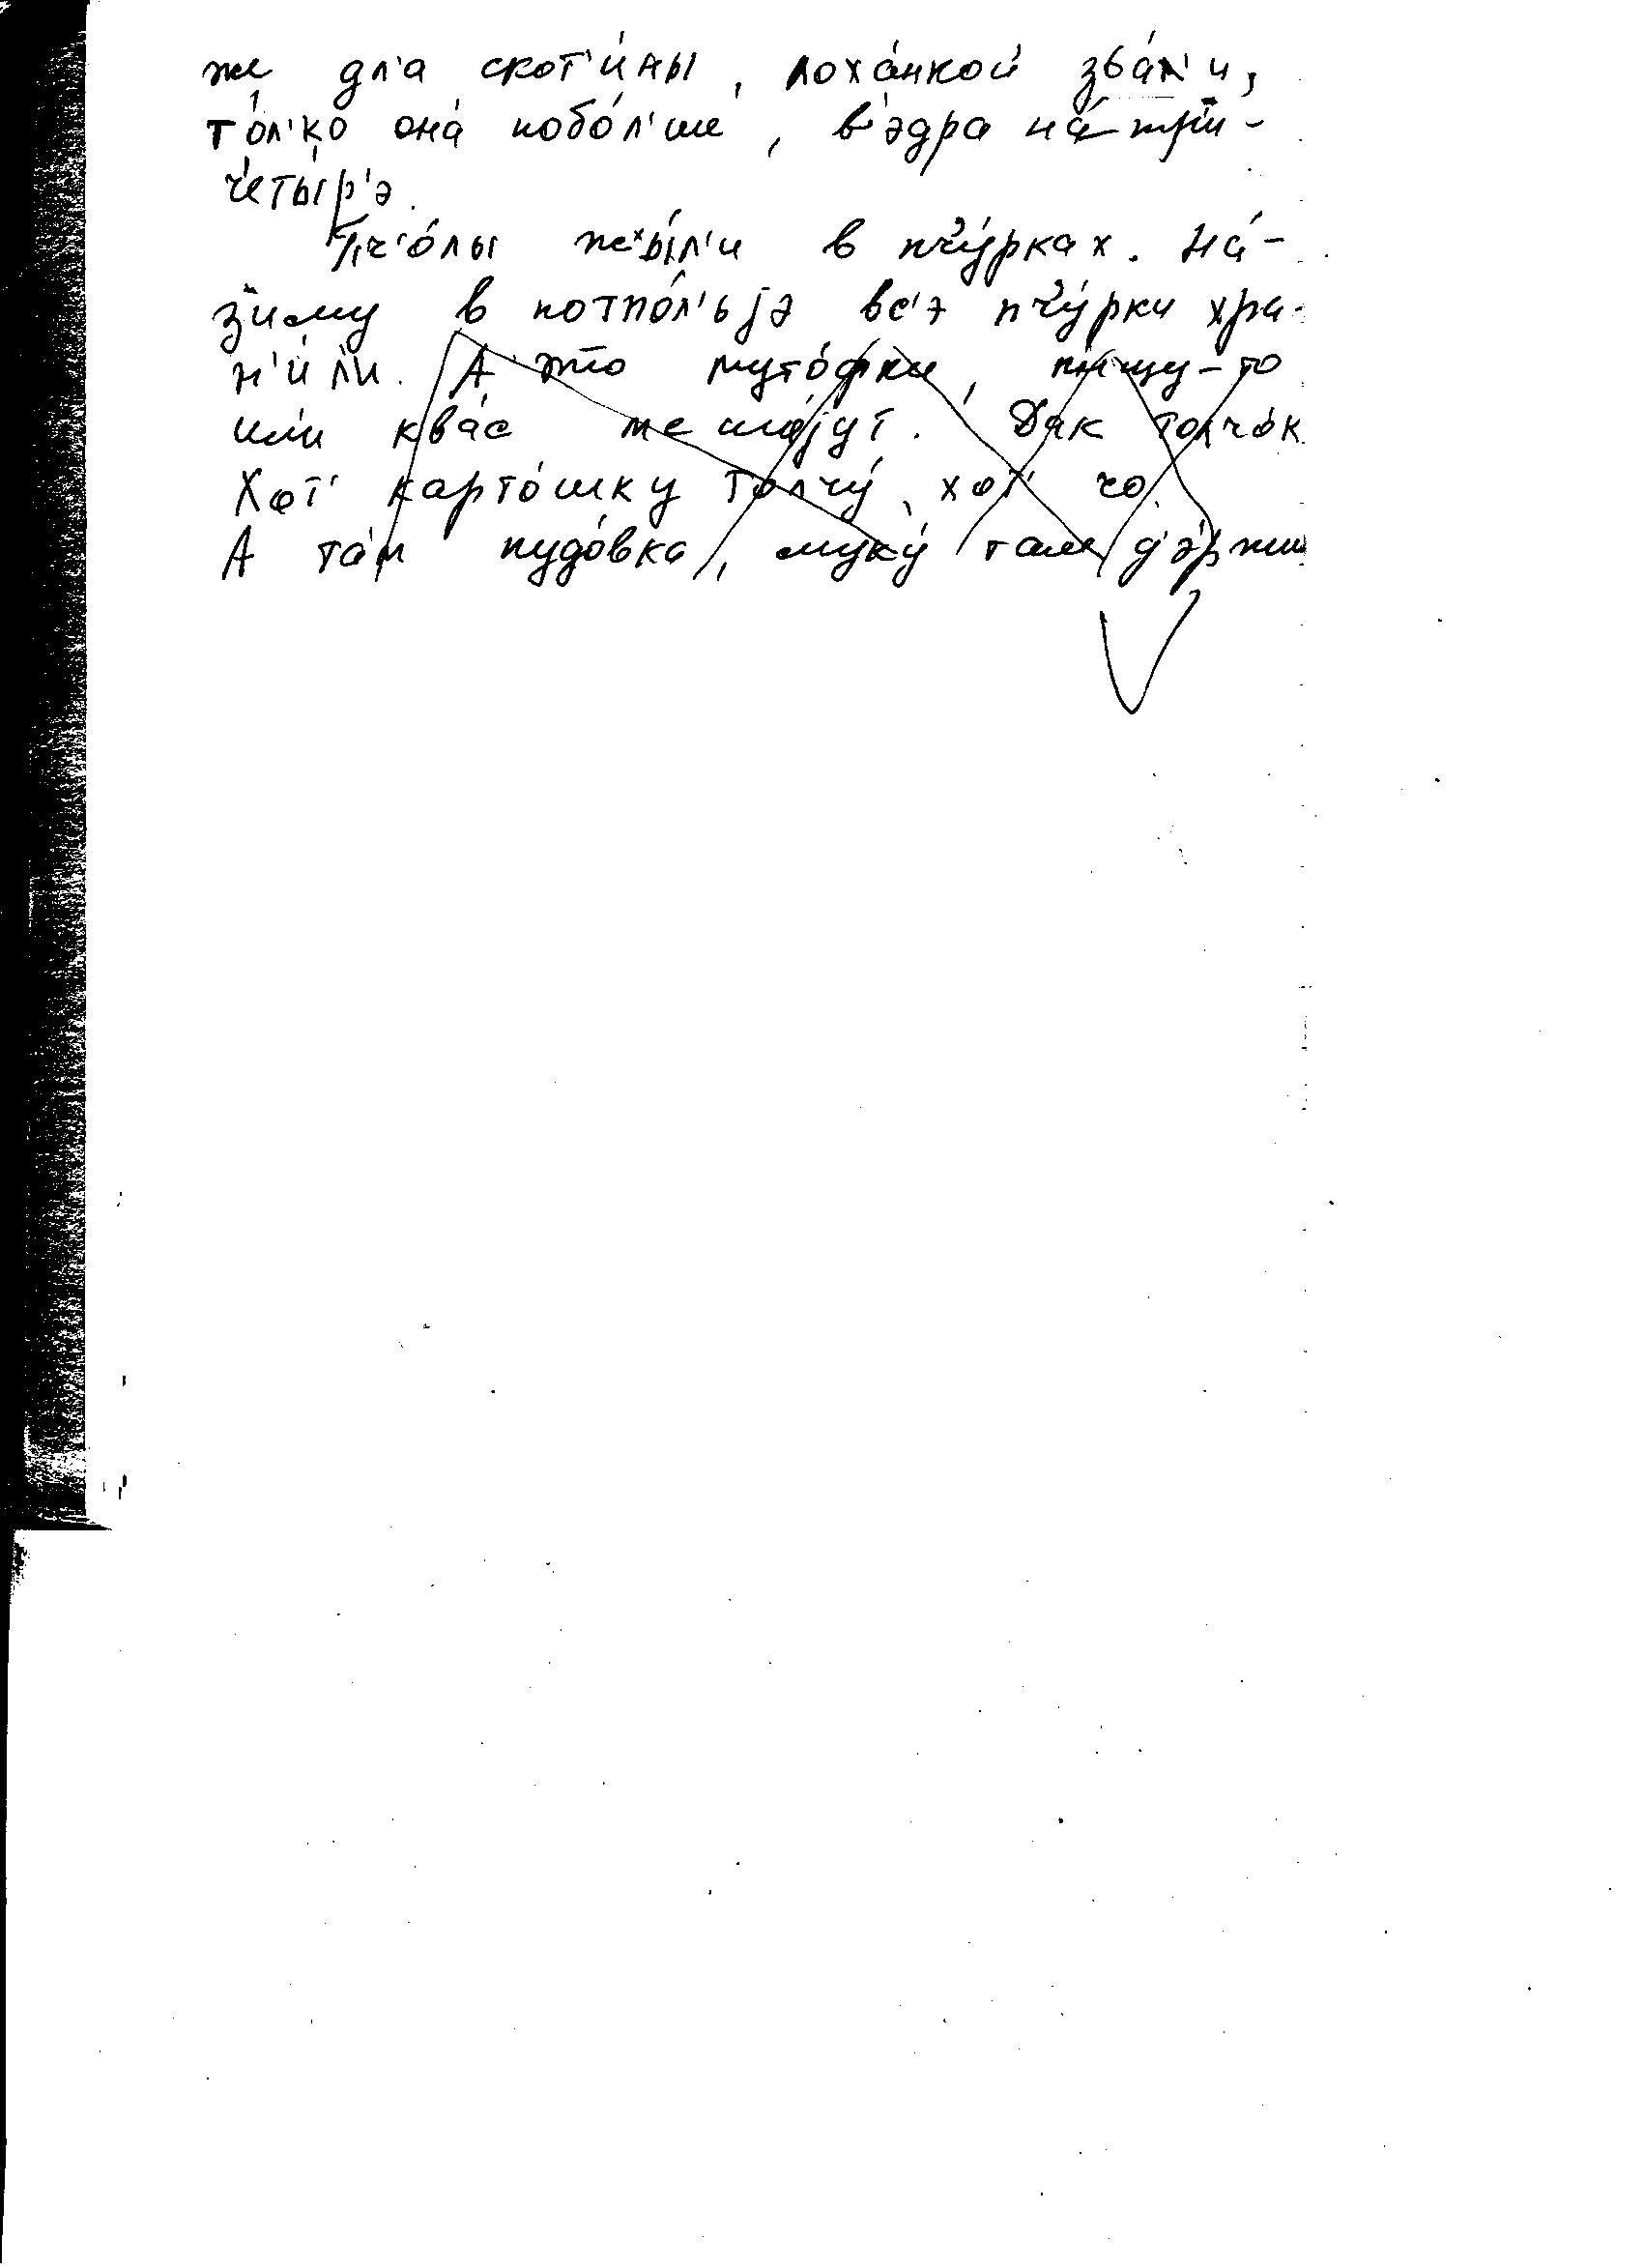 же дл'а скот'и́ны, лоха́нкой зва́л'и,
то́л'ко она́ побо́л'ше, в'эдра на́-три-
четы́р'э.
Пч'о́лы жы́л'и в пчу́рках. На́-
зиму в потпо́л'ьjэ вс'э пчу́рки хра-
н'и́ли. А э́то муто́фки, пи́щу-то
или ква́с меша́jут. Дак толчо́к
Хот' карто́шку толчу́, хот' чо.
А та́м пудо́вка, муку́ там д'э́ржи